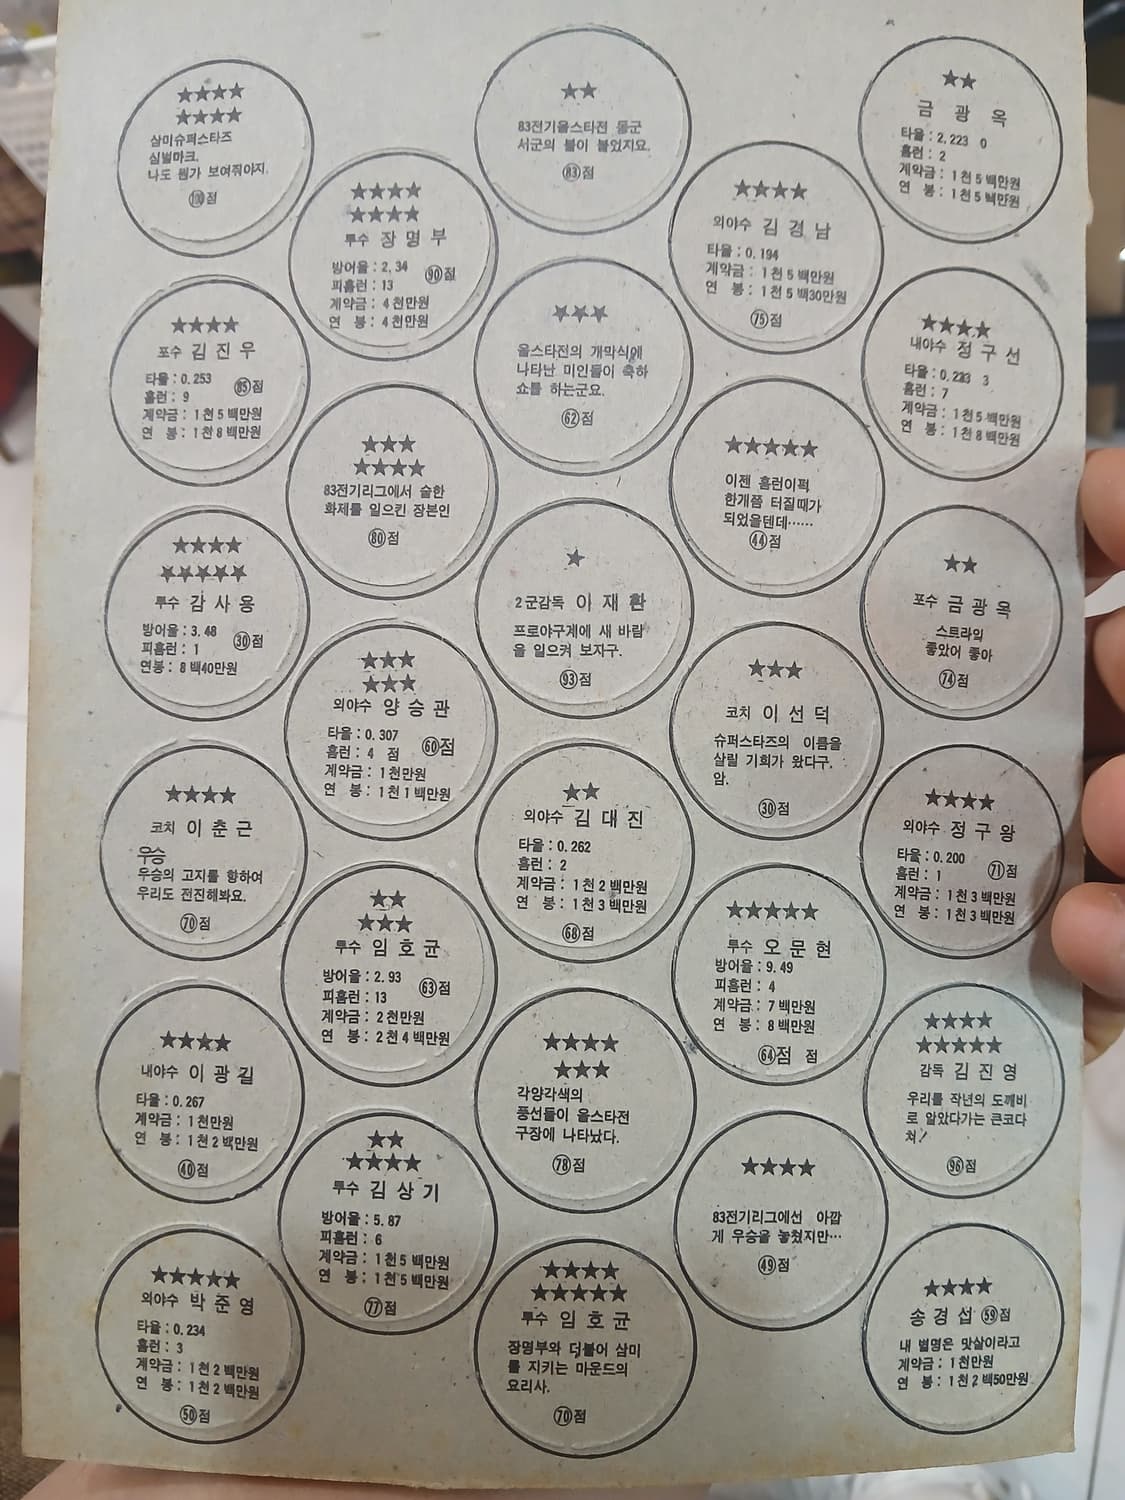 ★★★★
★★★★
삼미슈퍼스타즈
심벌마크.
나도 뭔가 보여줘야지.
100점
★★★★
포수 김진우
타율: 0.253
85점
홈런: 9
계약금: 1천5백만원
연 봉: 1천8백만원
★★★★
★★★★★
투수 감사용
방어율: 3.48
30점
피홈런: 1
연봉: 8백40만원
★★★★
코치 이춘근
우승
우승의 고지를 향하여
우리도 전진해봐요.
70점
★★★★
내야수 이광길
타율: 0.267
계약금: 1천만원
연 봉: 1천2백만원
40점
★★★★★
외야수 박준영
타율: 0.234
홈런: 3
계약금: 1천2백만원
연 봉: 1천2백만원
50점
★★★★
★★★★
투수 장명부
방어율: 2.34
90점
피홈런: 13
계약금: 4천만원
연 봉: 4천만원
★★★
★★★★
83전기리그에서 숱한
화제를 일으킨 장본인
80점
★★★
★★★
외야수 양승관
타율: 0.307
60점
홈런: 4 점
계약금: 1천만원
연 봉: 1천1백만원
★★
★★★
투수 임호균
방어율: 2.93
63점
피홈런: 13
계약금: 2천만원
연 봉: 2천4백만원
★★
★★★★
투수 김상기
방어율: 5.87
피홈런: 6
계약금: 1천5백만원
연 봉: 1천5백만원
77점
★★
83전기올스타전 동군
서군의 불이 붙었지요.
83점
★★★
올스타전의 개막식에
나타난 미인들이 축하
쇼를 하는군요.
62점
★
2군감독 이재환
프로야구계에 새 바람
을 일으켜 보자구.
93점
★★
외야수 김대진
타율: 0.262
홈런: 2
계약금: 1천2백만원
연 봉: 1천3백만원
68점
★★★★
★★★
각양각색의
풍선들이 올스타전
구장에 나타났다.
78점
★★★★
★★★★★
투수 임호균
장명부와 더불어 삼미
를 지키는 마운드의
요리사.
70점
★★★★
외야수 김경남
타율: 0.194
계약금: 1천5백만원
연 봉: 1천5백30만원
75점
★★★★★
이젠 홈런이퍽
한개쯤 터질때가
되었을텐데……
44점
★★★
코치 이선덕
슈퍼스타즈의 이름을
살릴 기회가 왔다구.
암.
30점
★★★★★
투수 오문현
방어율: 9.49
피홈런: 4
계약금: 7백만원
연 봉: 8백만원
64점 점
★★★★
83전기리그에선 아깝
게 우승을 놓쳤지만…
49점
★★
금광옥
타율: 2.223 0
홈런: 2
계약금: 1천5백만원
연 봉: 1천5백만원
★★★★
내야수 정구선
홈런: 7
계약금: 1천5백만원
연 봉: 1천8백만원
★★
포수 금광옥
스트라익
좋았어 좋아
74점
★★★★
외야수 정구왕
타율: 0.200
71점
홈런: 1
계약금: 1천3백만원
연 봉: 1천3백만원
★★★★
★★★★★
감독 김진영
우리를 작년의 도깨비
로 알았다가는 큰코다
쳐!
96점
★★★★
송경섭 59점
내 별명은 맛살이라고
계약금: 1천만원
연 봉: 1천2백50만원